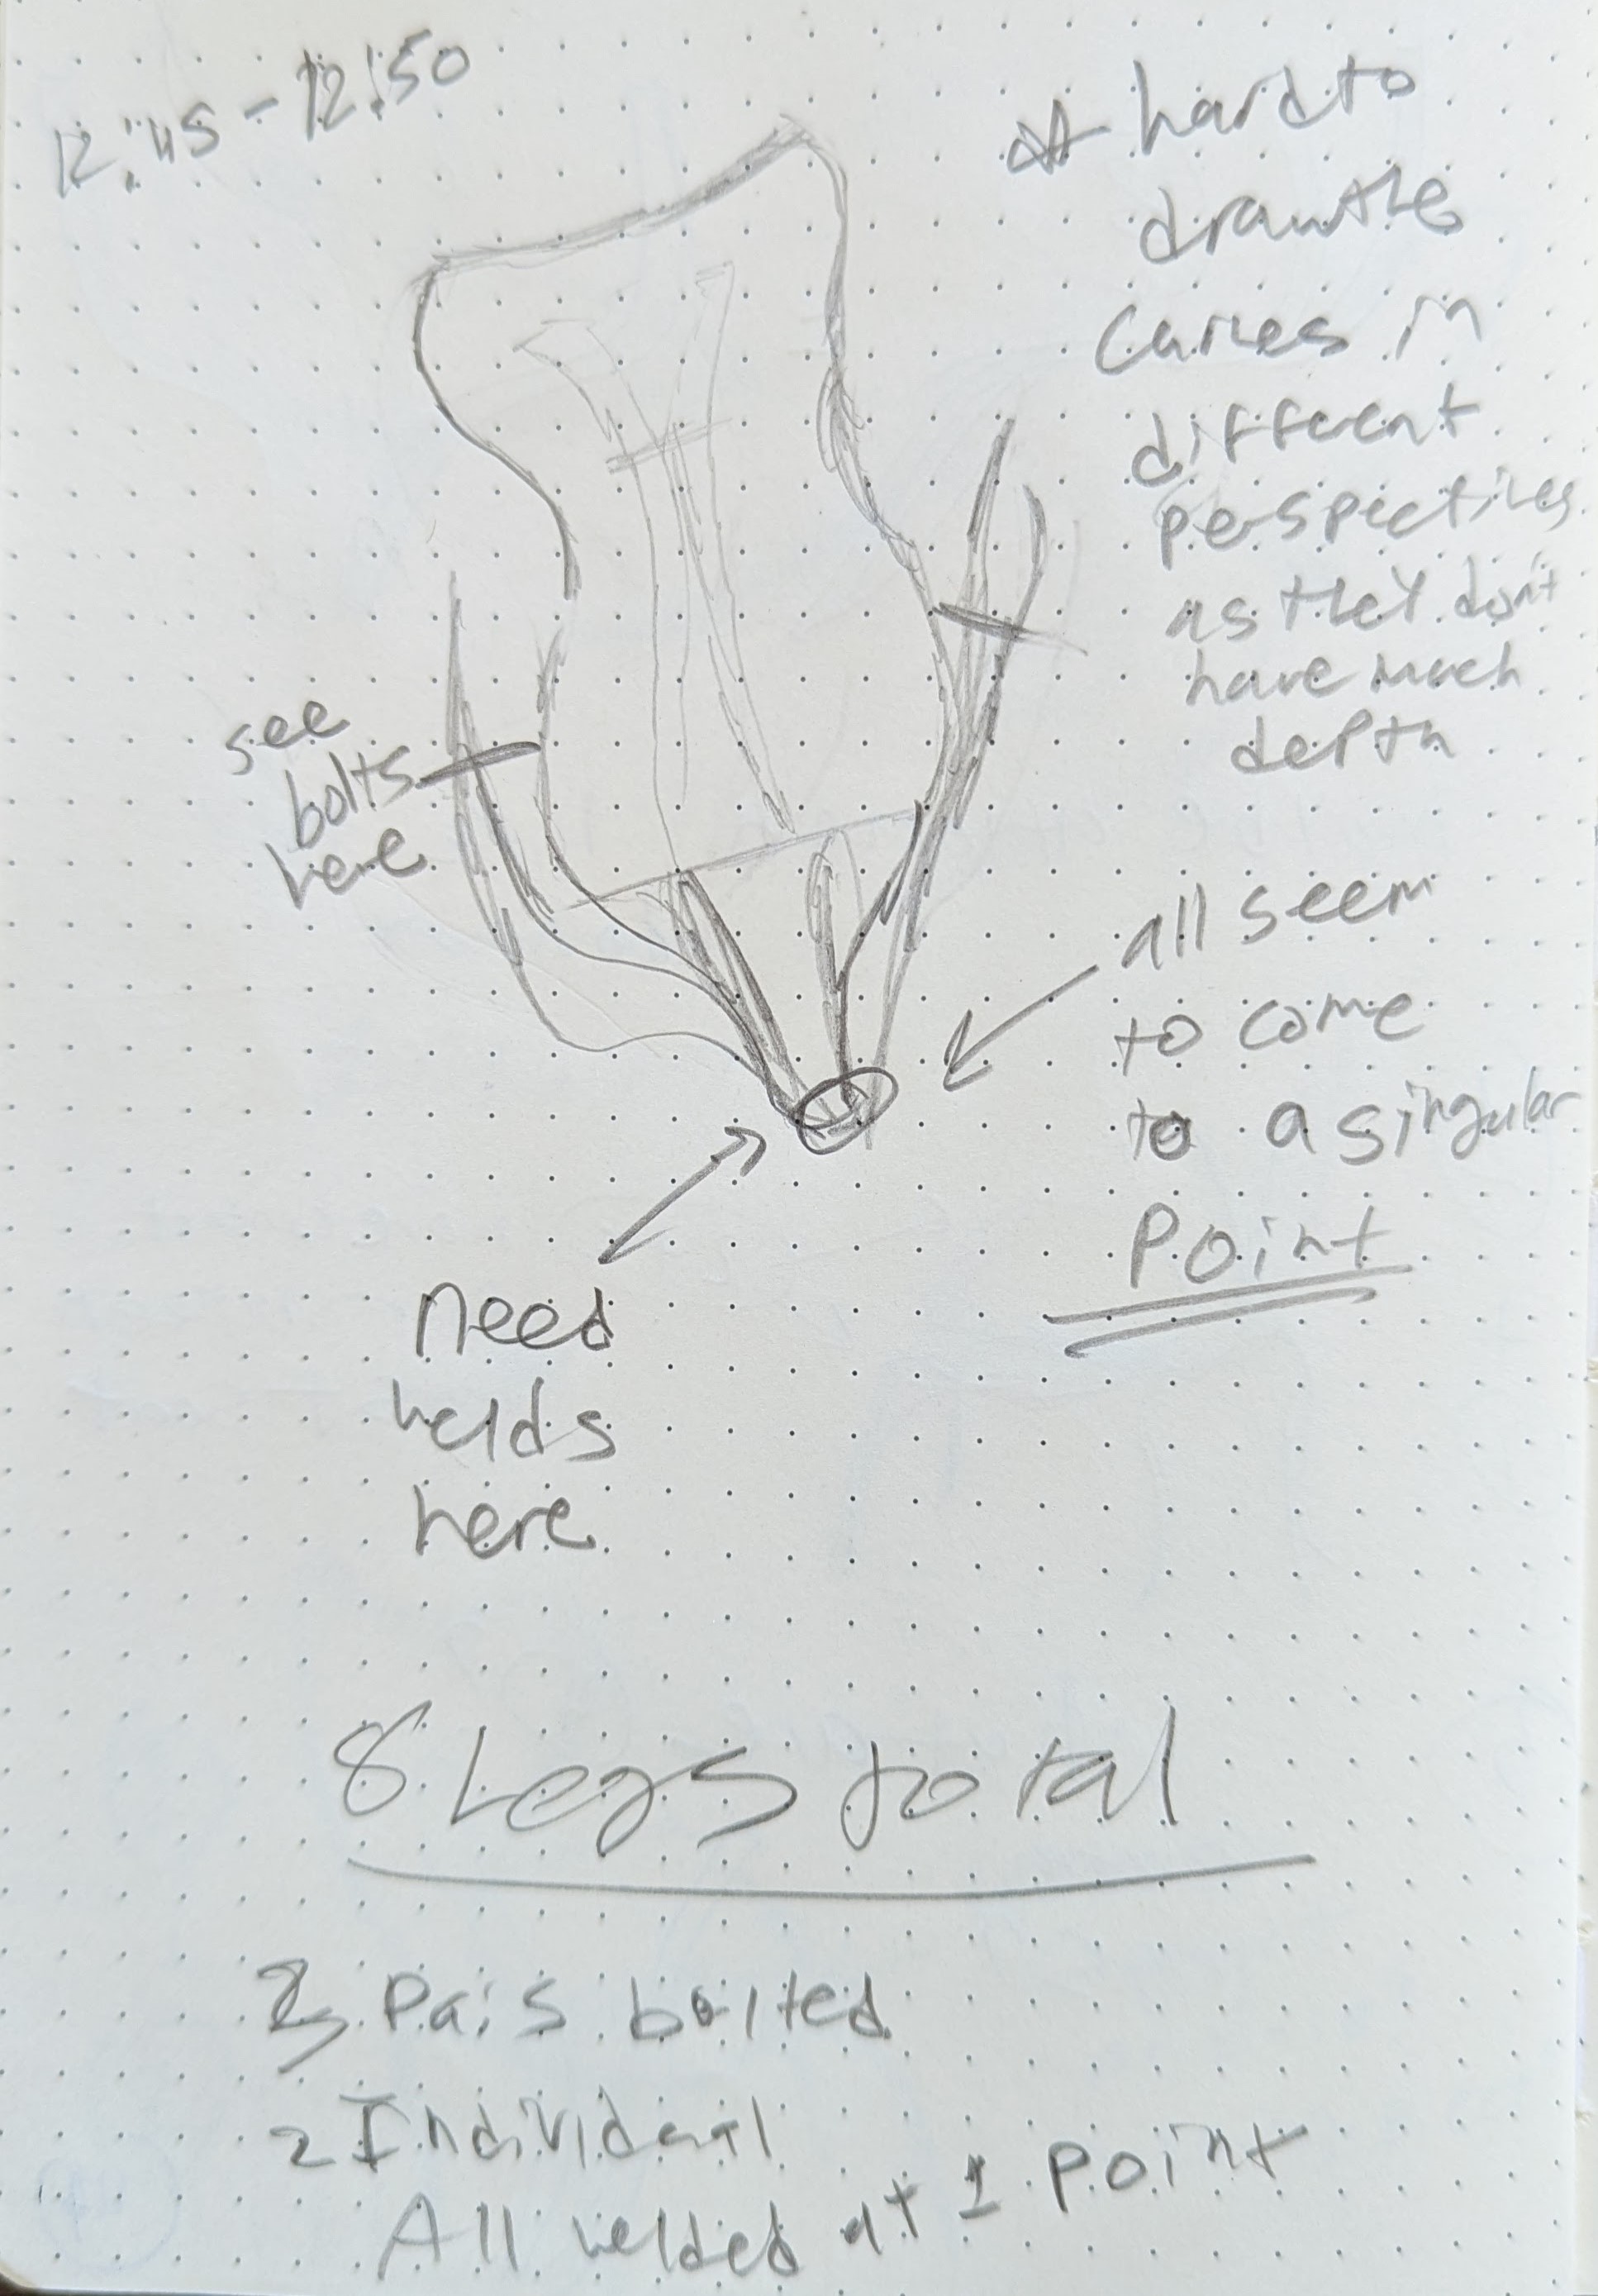 12:45 - 12:50
hard to
draw the
curves in
different
perspectives
as they don't
have much
depth
see
bolts
here
all seem
to come
to a singular
Point
need
welds
here
8 Legs total
Pais bolted
2 Individual
All welded at 1 point